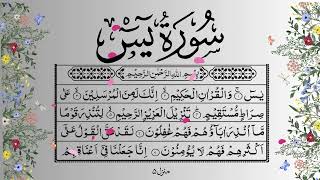 سُورَةُ يٰسٓ
بِسْمِ اللهِ الرَّحْمٰنِ الرَّحِيْمِ
يٰسٓ ۝ وَالْقُرْاٰنِ الْحَكِيْمِ ۝ اِنَّكَ لَمِنَ الْمُرْسَلِيْنَ ۝ عَلٰى
صِرَاطٍ مُّسْتَقِيْمٍ ۝ تَنْزِيْلَ الْعَزِيْزِ الرَّحِيْمِ ۝ لِتُنْذِرَ قَوْمًا
مَّاۤ اُنْذِرَ اٰبَآؤُهُمْ فَهُمْ غٰفِلُوْنَ ۝ لَقَدْ حَقَّ الْقَوْلُ عَلٰۤى
اَكْثَرِهِمْ فَهُمْ لَا يُؤْمِنُوْنَ ۝ اِنَّا جَعَلْنَا فِيْۤ اَعْنَاقِهِمْ
منزل ٥